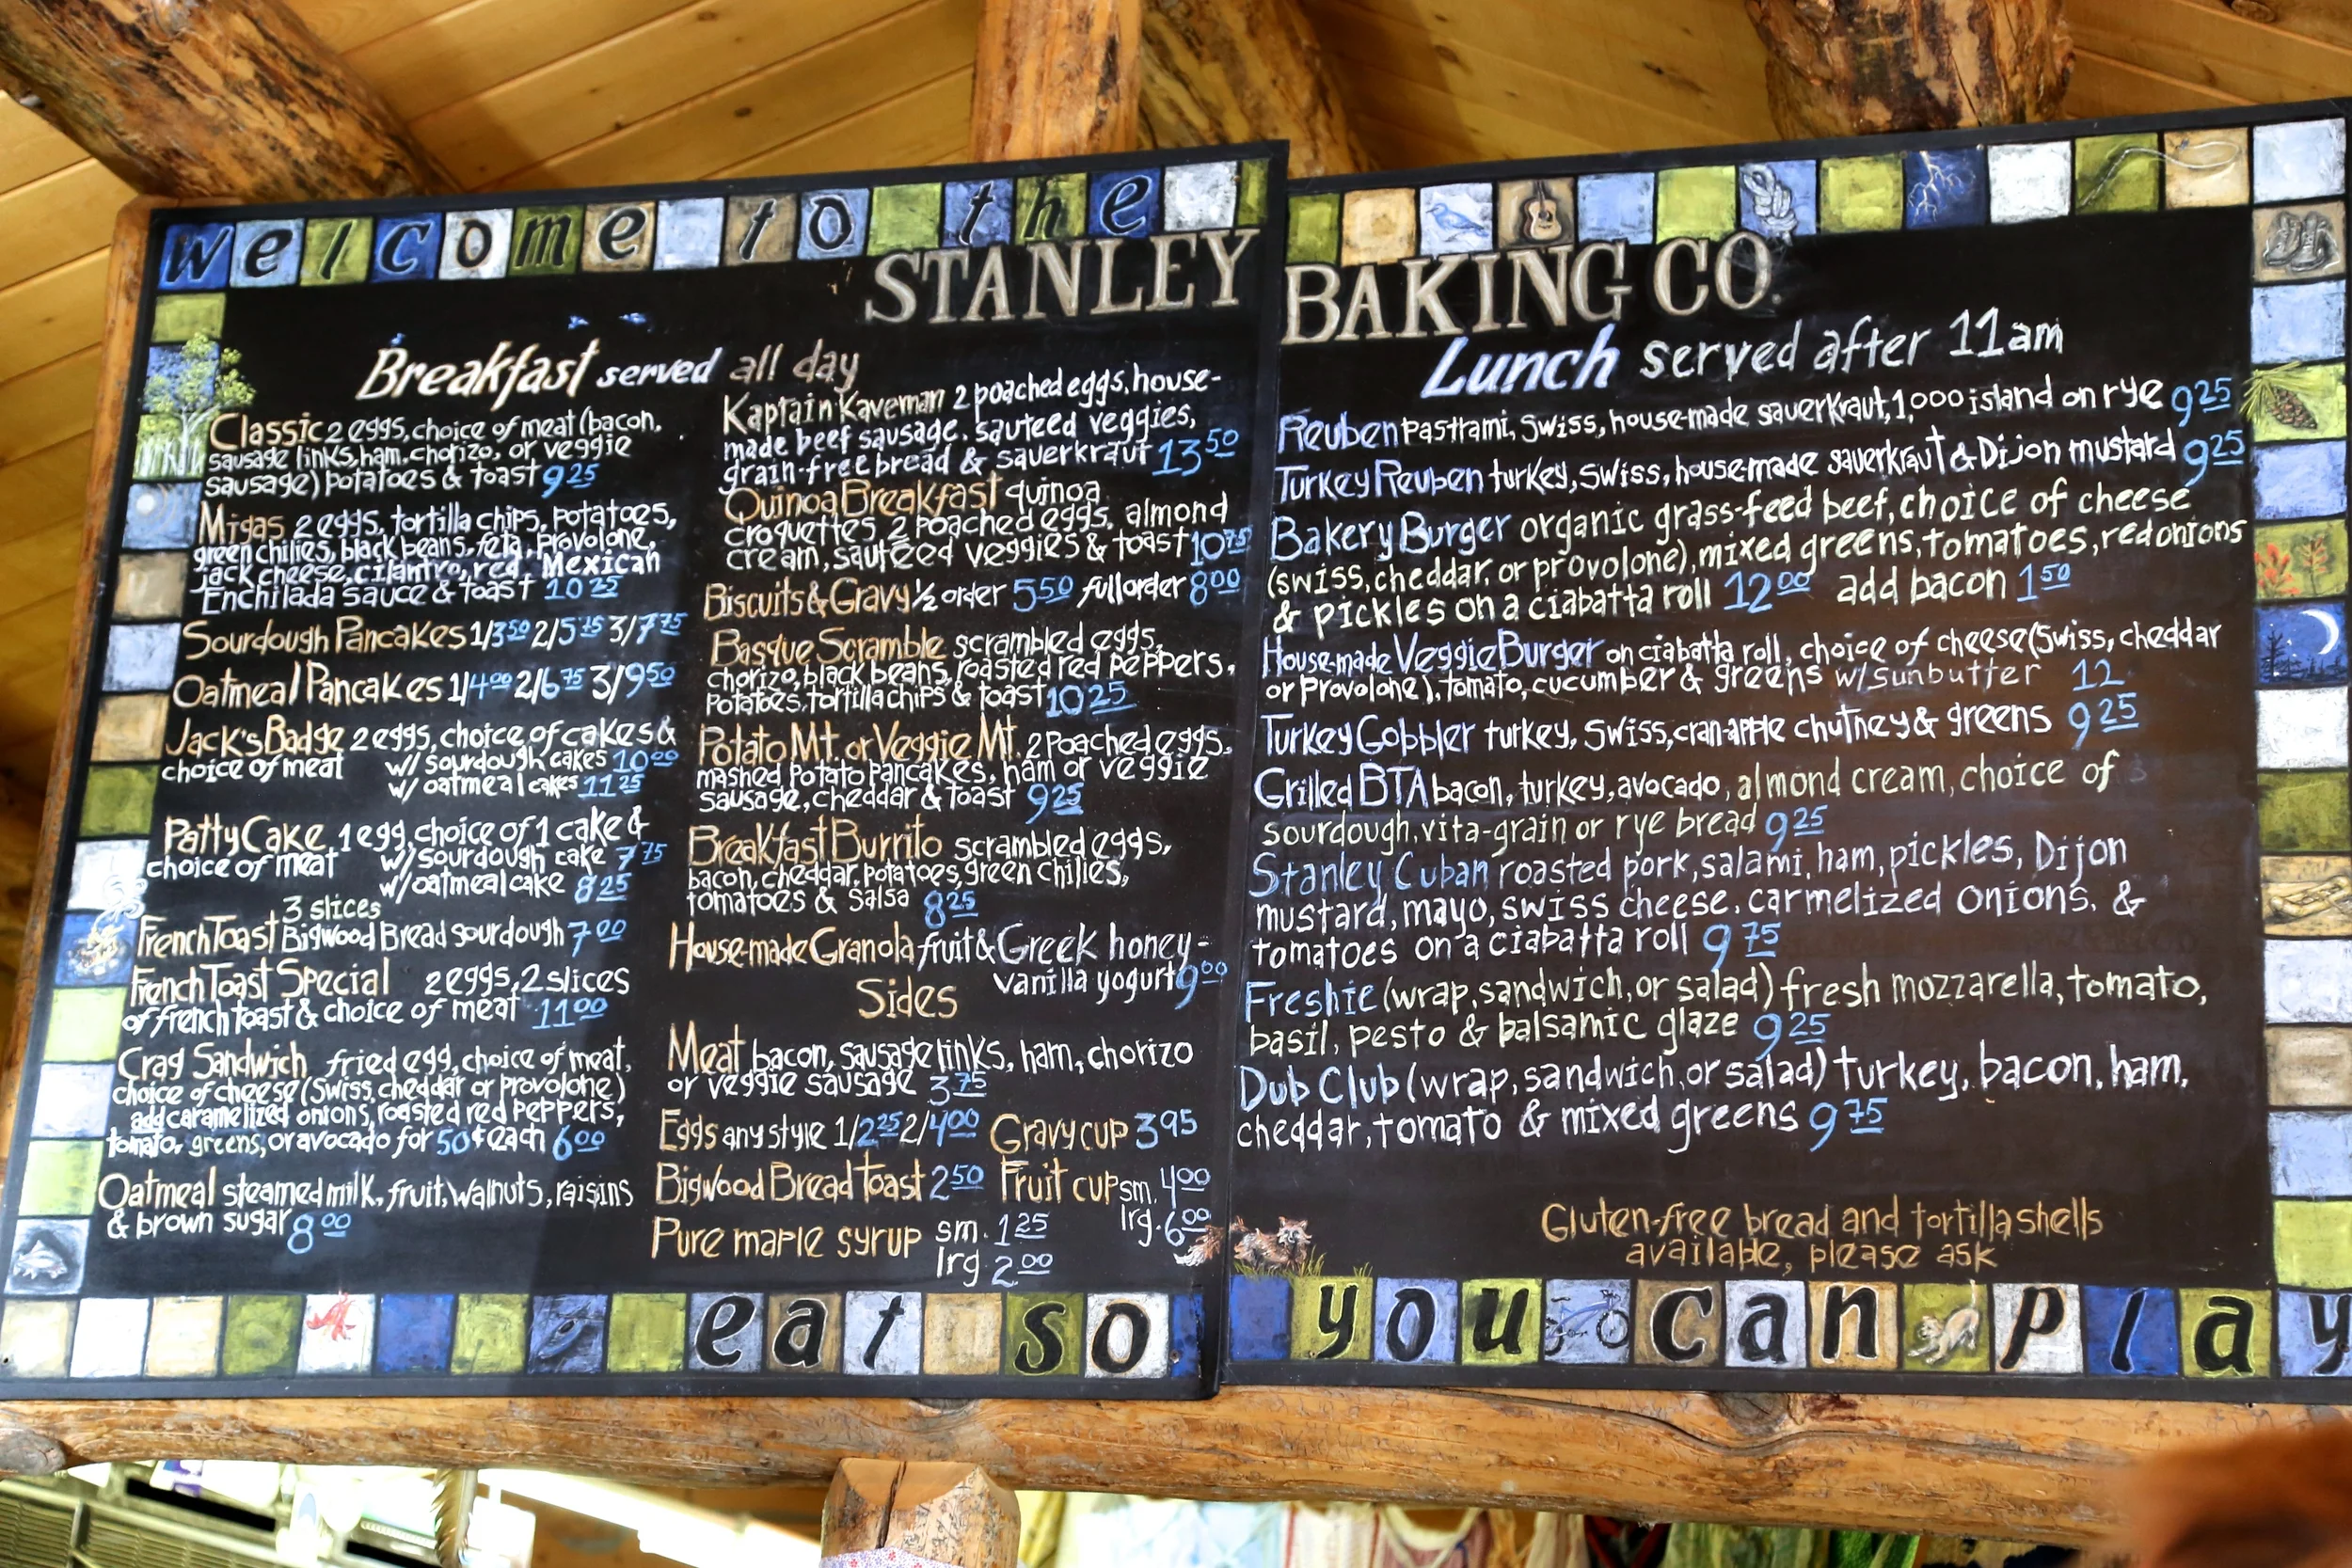 welcome to the
STANLEY BAKING CO.
Breakfast served all day
Classic 2 eggs, choice of meat (bacon,
sausage links, ham, chorizo, or veggie
sausage) potatoes & toast 9 25
Migas 2 eggs, tortilla chips, potatoes,
green chilies, black beans, feta, provolone,
jack cheese, cilantro, red, Mexican
Enchilada sauce & toast 10 25
Sourdough Pancakes 1/3 50 2/5 75 3/7 75
Oatmeal Pancakes 1/4 00 2/6 75 3/9 50
Jack's Badge 2 eggs, choice of cakes &
choice of meat w/ sourdough cakes 10 00
w/ oatmeal cakes 11 25
Patty Cake 1 egg, choice of 1 cake &
choice of meat w/ sourdough cake 7 75
w/ oatmeal cake 8 25
3 slices
French Toast Bigwood Bread sourdough 7 00
French Toast Special 2 eggs, 2 slices
of french toast & choice of meat 11 00
Crag Sandwich fried egg, choice of meat,
choice of cheese (Swiss, cheddar or provolone)
add caramelized onions, roasted red peppers,
tomato, greens, or avocado for 50¢ each 6 00
Oatmeal steamed milk, fruit, walnuts, raisins
& brown sugar 8 00
Kaptain Kaveman 2 poached eggs, house-
made beef sausage, sauteed veggies,
grain-free bread & sauerkraut 13 50
Quinoa Breakfast quinoa
croquettes, 2 poached eggs, almond
cream, sauteed veggies & toast 10 75
Biscuits & Gravy ½ order 5 50 full order 8 00
Basque Scramble scrambled eggs,
chorizo, black beans, roasted red peppers,
potatoes, tortilla chips & toast 10 25
Potato Mt. or Veggie Mt. 2 poached eggs,
mashed potato pancakes, ham or veggie
sausage, cheddar & toast 9 25
Breakfast Burrito scrambled eggs,
bacon, cheddar, potatoes, green chilies,
tomatoes & salsa 8 25
House-made Granola fruit & Greek honey-
vanilla yogurt 9 00
Sides
Meat bacon, sausage links, ham, chorizo
or veggie sausage 3 75
Eggs any style 1/2 25 2/4 00 Gravy cup 3 95
Bigwood Bread toast 2 50 Fruit cup sm. 4 00
lrg. 6 00
Pure maple syrup sm. 1 25
lrg. 2 00
Lunch served after 11am
Reuben pastrami, Swiss, house-made sauerkraut, 1,000 island on rye 9 25
Turkey Reuben turkey, Swiss, house-made sauerkraut & Dijon mustard 9 25
Bakery Burger organic grass-feed beef, choice of cheese
(swiss, cheddar, or provolone), mixed greens, tomatoes, red onions
& pickles on a ciabatta roll 12 00 add bacon 1 50
House-made Veggie Burger on ciabatta roll, choice of cheese (Swiss, cheddar
or provolone), tomato, cucumber & greens w/sunbutter 12
Turkey Gobbler turkey, Swiss, cran-apple chutney & greens 9 25
Grilled BTA bacon, turkey, avocado, almond cream, choice of
sourdough, vita-grain or rye bread 9 25
Stanley Cuban roasted pork, salami, ham, pickles, Dijon
mustard, mayo, swiss cheese, carmelized onions, &
tomatoes on a ciabatta roll 9 75
Freshie (wrap, sandwich, or salad) fresh mozzarella, tomato,
basil, pesto & balsamic glaze 9 25
Dub Club (wrap, sandwich, or salad) turkey, bacon, ham,
cheddar, tomato & mixed greens 9 75
Gluten-free bread and tortilla shells
available, please ask
eat so you can play